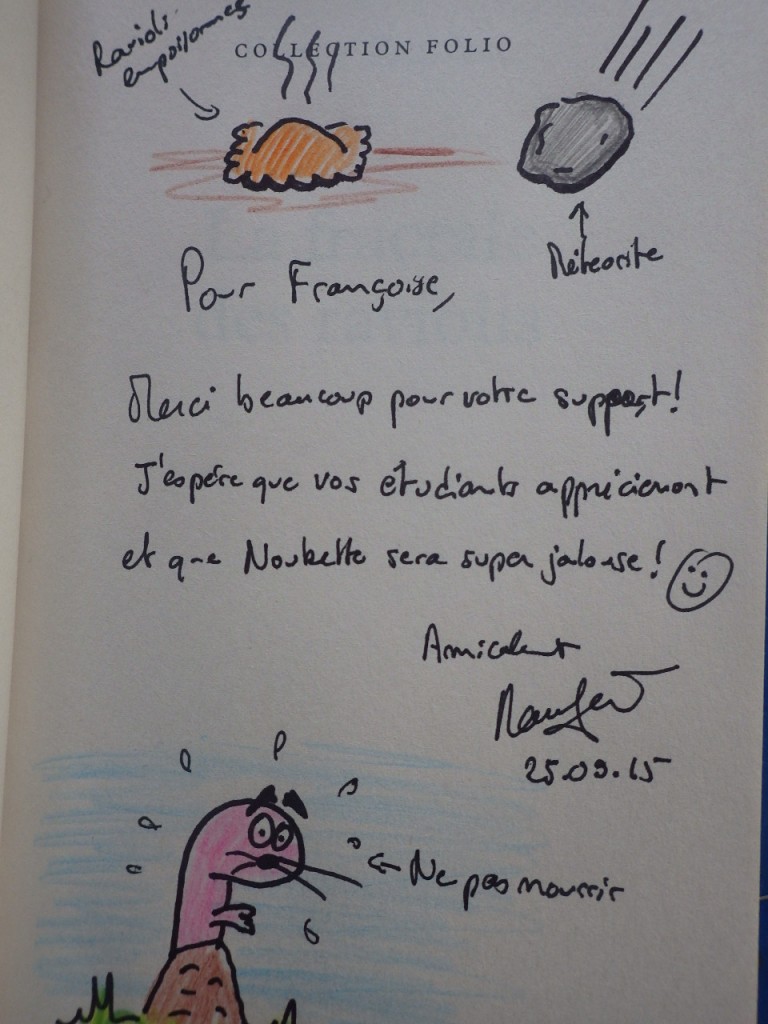 Raviolis
empoisonnés
COLLECTION FOLIO
Météorite
Pour Françoise,
Merci beaucoup pour votre support!
J'espère que vos étudiants apprécieront
et que Noukette sera super jalouse!
Amicalement
25.09.15
Ne pas nourrir